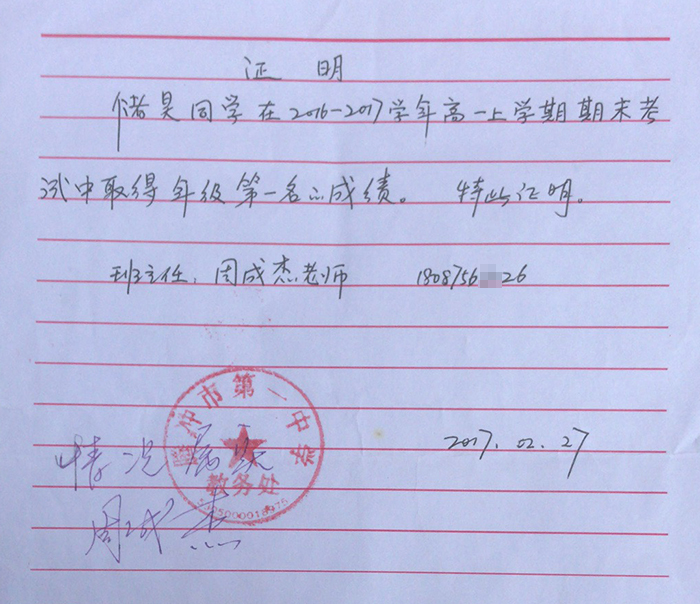 证 明
储昊同学在2016-2017学年高一上学期期末考
试中取得年级第一名的成绩。 特此证明。
班主任:周成杰老师 1808756 26
腾冲市第一中学
教务处
2017.02.27
情况属实
周成杰